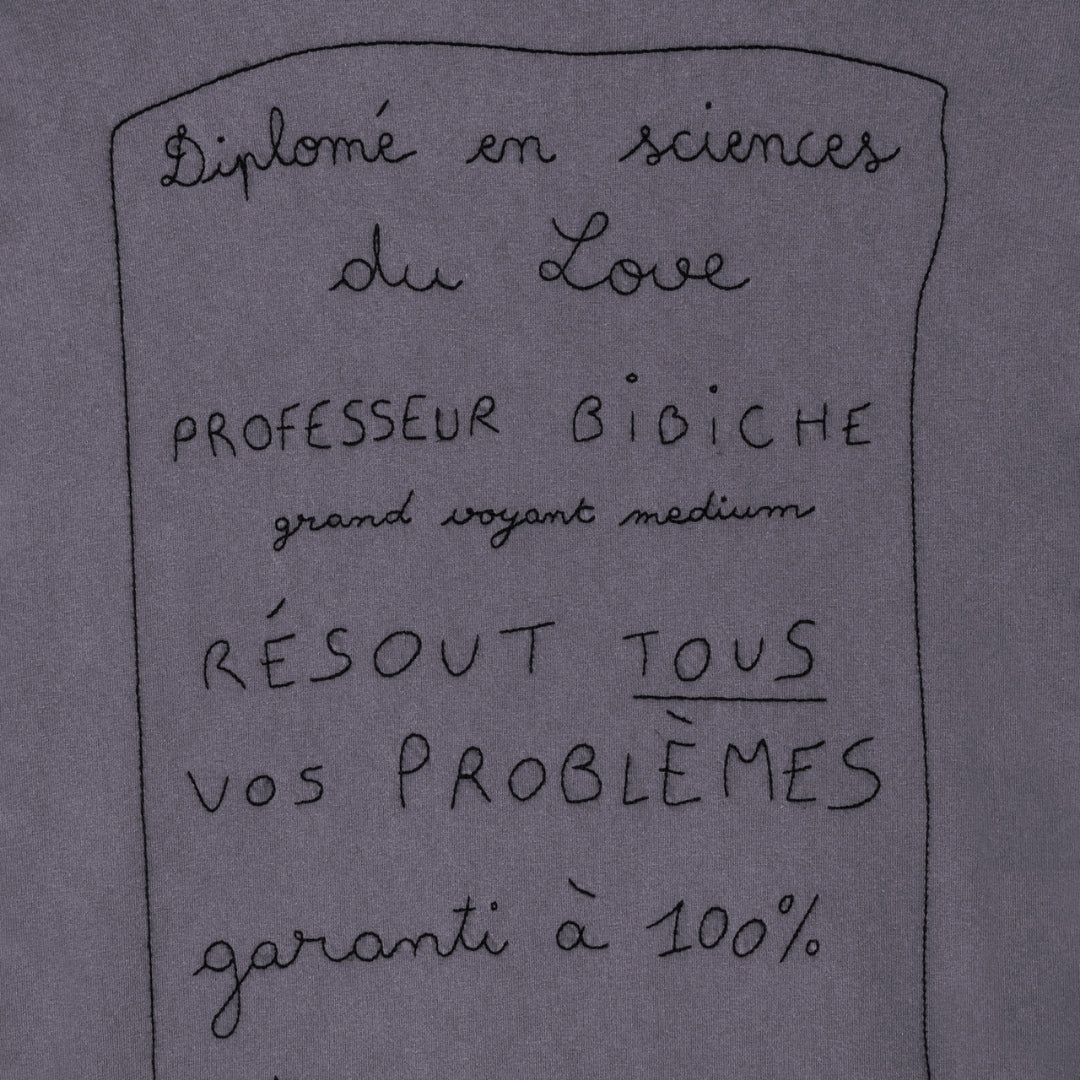 Diplomé en sciences
du Love
PROFESSEUR BiBiCHE
grand voyant medium
RÉSOUT TOUS
vos PROBLÈMES
garanti à 100%